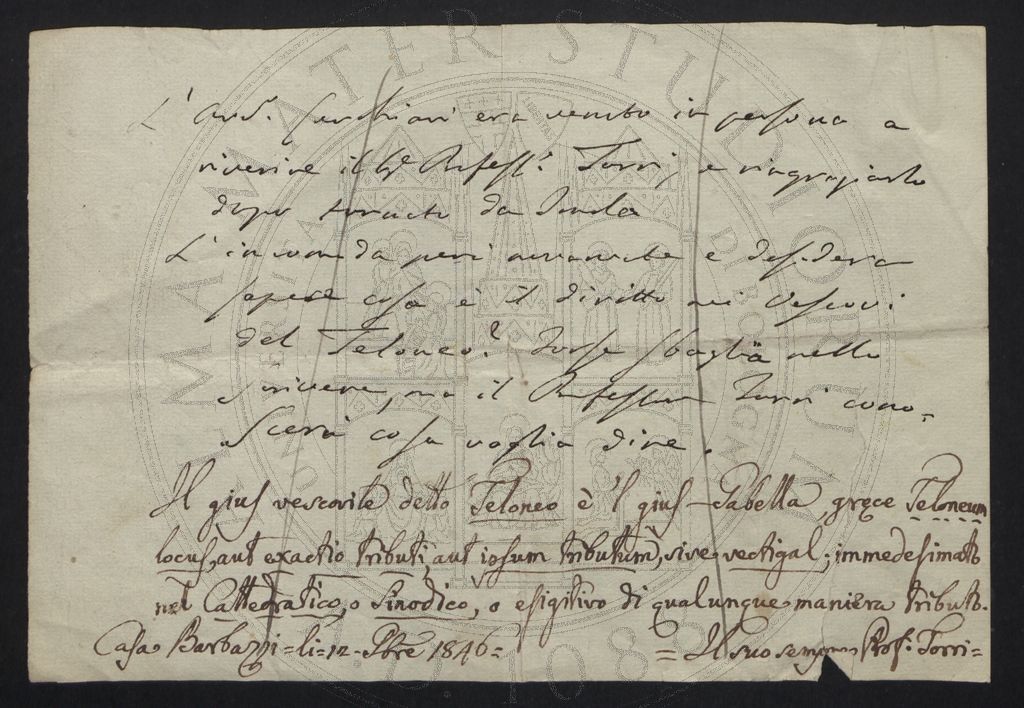 L' Avv. era venuto in persona a
riverire il Sig. Profess.r Torri, e ringraziarlo
dopo tornato da Imola
L' incomoda però e desidera
sapere cosa è il diritto nei Vescovi
del Teloneo? Forse sbaglia nello
scrivere, ma il Professor Torri cono=
scerà cosa voglia dire.
Il gius vescovile detto Teloneo è 'l gius-Gabella, grece Teloneum
locus, aut exactio tributi, aut ipsum tributum, sive vectigal; immedesimato
nel Cattedratico, o Sinodico, o esigitivo di qualunque maniera tributo.
Casa Barbazzi = li = 12 = 1846 = = Il suo Prof. Torri =
ALMA MATER STUDIORUM
1088